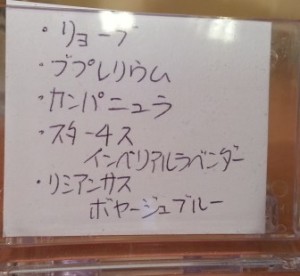 ・リョーブ
・ブプレリウム
・カンパニュラ
・スターチス
インペリアルラベンダー
・リシアンサス
ボヤージュブルー